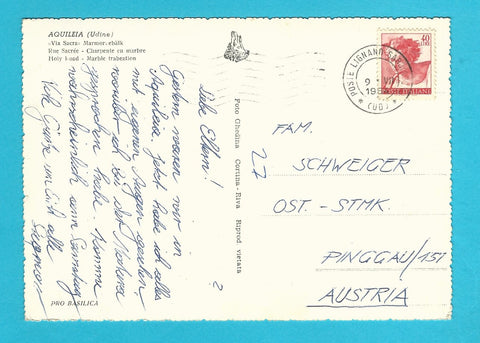 AQUILEIA (Udine)
«Via Sacra» Marmor
Rue Sacrée - Charpente en marbre
Holy Road - Marble trabeation
Liebe Eltern!
Gestern waren wir in
Aquileia. Jetzt habe ich alles
mit eigenen Augen gesehen,
ich bei der Matura
gesprochen habe. Komme
wahrscheinlich am Samstag
Viele Grüße an Euch alle
Siegmar
PRO BASILICA
Foto Ghedina Cortina - Riva Riprod vietata
POSTE LIGNANO
9
(UD)
40
POSTE ITALIANE
FAM.
SCHWEIGER
27
OST. - STMK.
PINGGAU/151
AUSTRIA
?